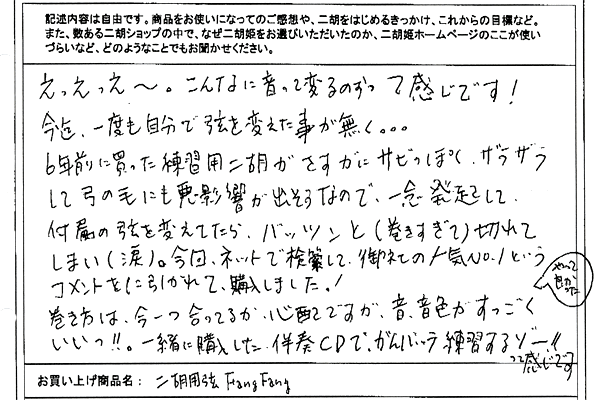 記述内容は自由です。商品をお使いになってのご感想や、二胡をはじめるきっかけ、これからの目標など。
また、数ある二胡ショップの中で、なぜ二胡姫をお選びいただいたのか、二胡姫ホームページのここが使い
づらいなど、どのようなことでもお聞かせください。
えっえっえ〜。こんなに音って変るのずって感じです!
今迄、一度も自分で弦を変えた事が無く。。。
6年前に買った練習用二胡がさすがにサビっぽく、ザラザラ
して弓の毛にも悪影響が出そうなので、一念発起して、
付属の弦を変えてたら、バッツンと(巻きすぎて)切れて
しまい(涙)。今回、ネットで検索して、御社の人気No.1という
コメントをに引がれて、購入しました。!
やって良かった
巻き方は、今一つ合ってるか、心配ですが、音、音色がすっごく
いいっ!!。一緒に購した、伴奏CDで、がんバッテ練習するゾー!!
って感じです
お買い上げ商品名: 二胡用弦 FangFang